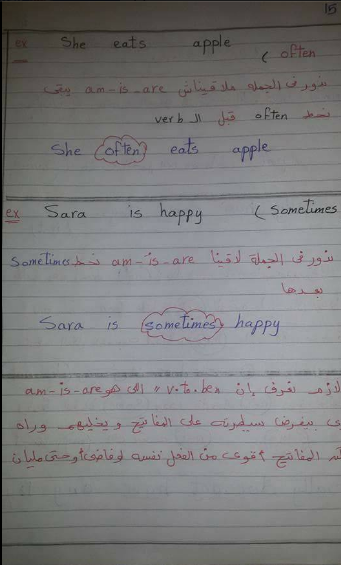 15
ex She eats apple ( often
ندور في الجملة ملاقيناش am-is-are يبقى
نحط often قبل الـ verb
She often eats apple
ex Sara is happy ( Sometimes
ندور في الجملة لاقينا am-is-are نحط Sometimes
بعدها
Sara is sometimes happy
لازم نعرف إن "v.to.be" اللى هو am-is-are
بيفرض سيطرته على المفاتيح ويخليهم وراه
المفاتيح أقوى من الفعل نفسه لو فاضى أو حتى مليان